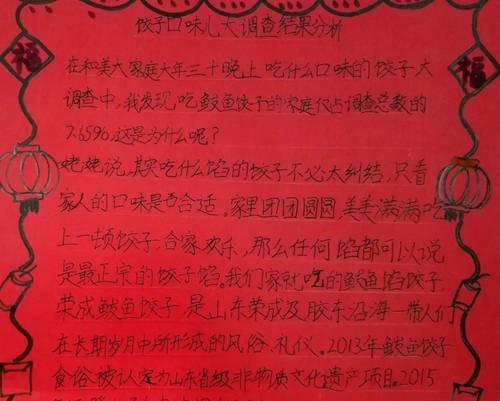 饺子口味儿大调查结果分析
福
福
在和美大家庭大年三十晚上吃什么口味的饺子大
调查中,我发现,吃鲅鱼饺子的家庭仅占调查总数的
7.65%,这是为什么呢?
姥姥说,其实吃什么馅的饺子不必太纠结,只看
家人的口味是否合适。家里团团圆圆,美美满满吃
上一顿饺子,合家欢乐,那么任何馅都可以说
是最正宗的饺子馅。我们家就吃的鲅鱼馅饺子,
荣成鲅鱼饺子,是山东荣成及胶东沿海一带人们
在长期岁月中所形成的风俗、礼仪。2013年鲅鱼饺子
食俗被认定为山东省级非物质文化遗产项目。2015